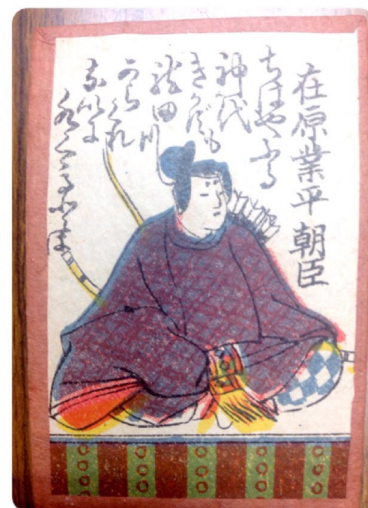 在原業平朝臣
ちはやふる
神代
きかす
龍田川
からくれ
なゐに
水くゝるとは